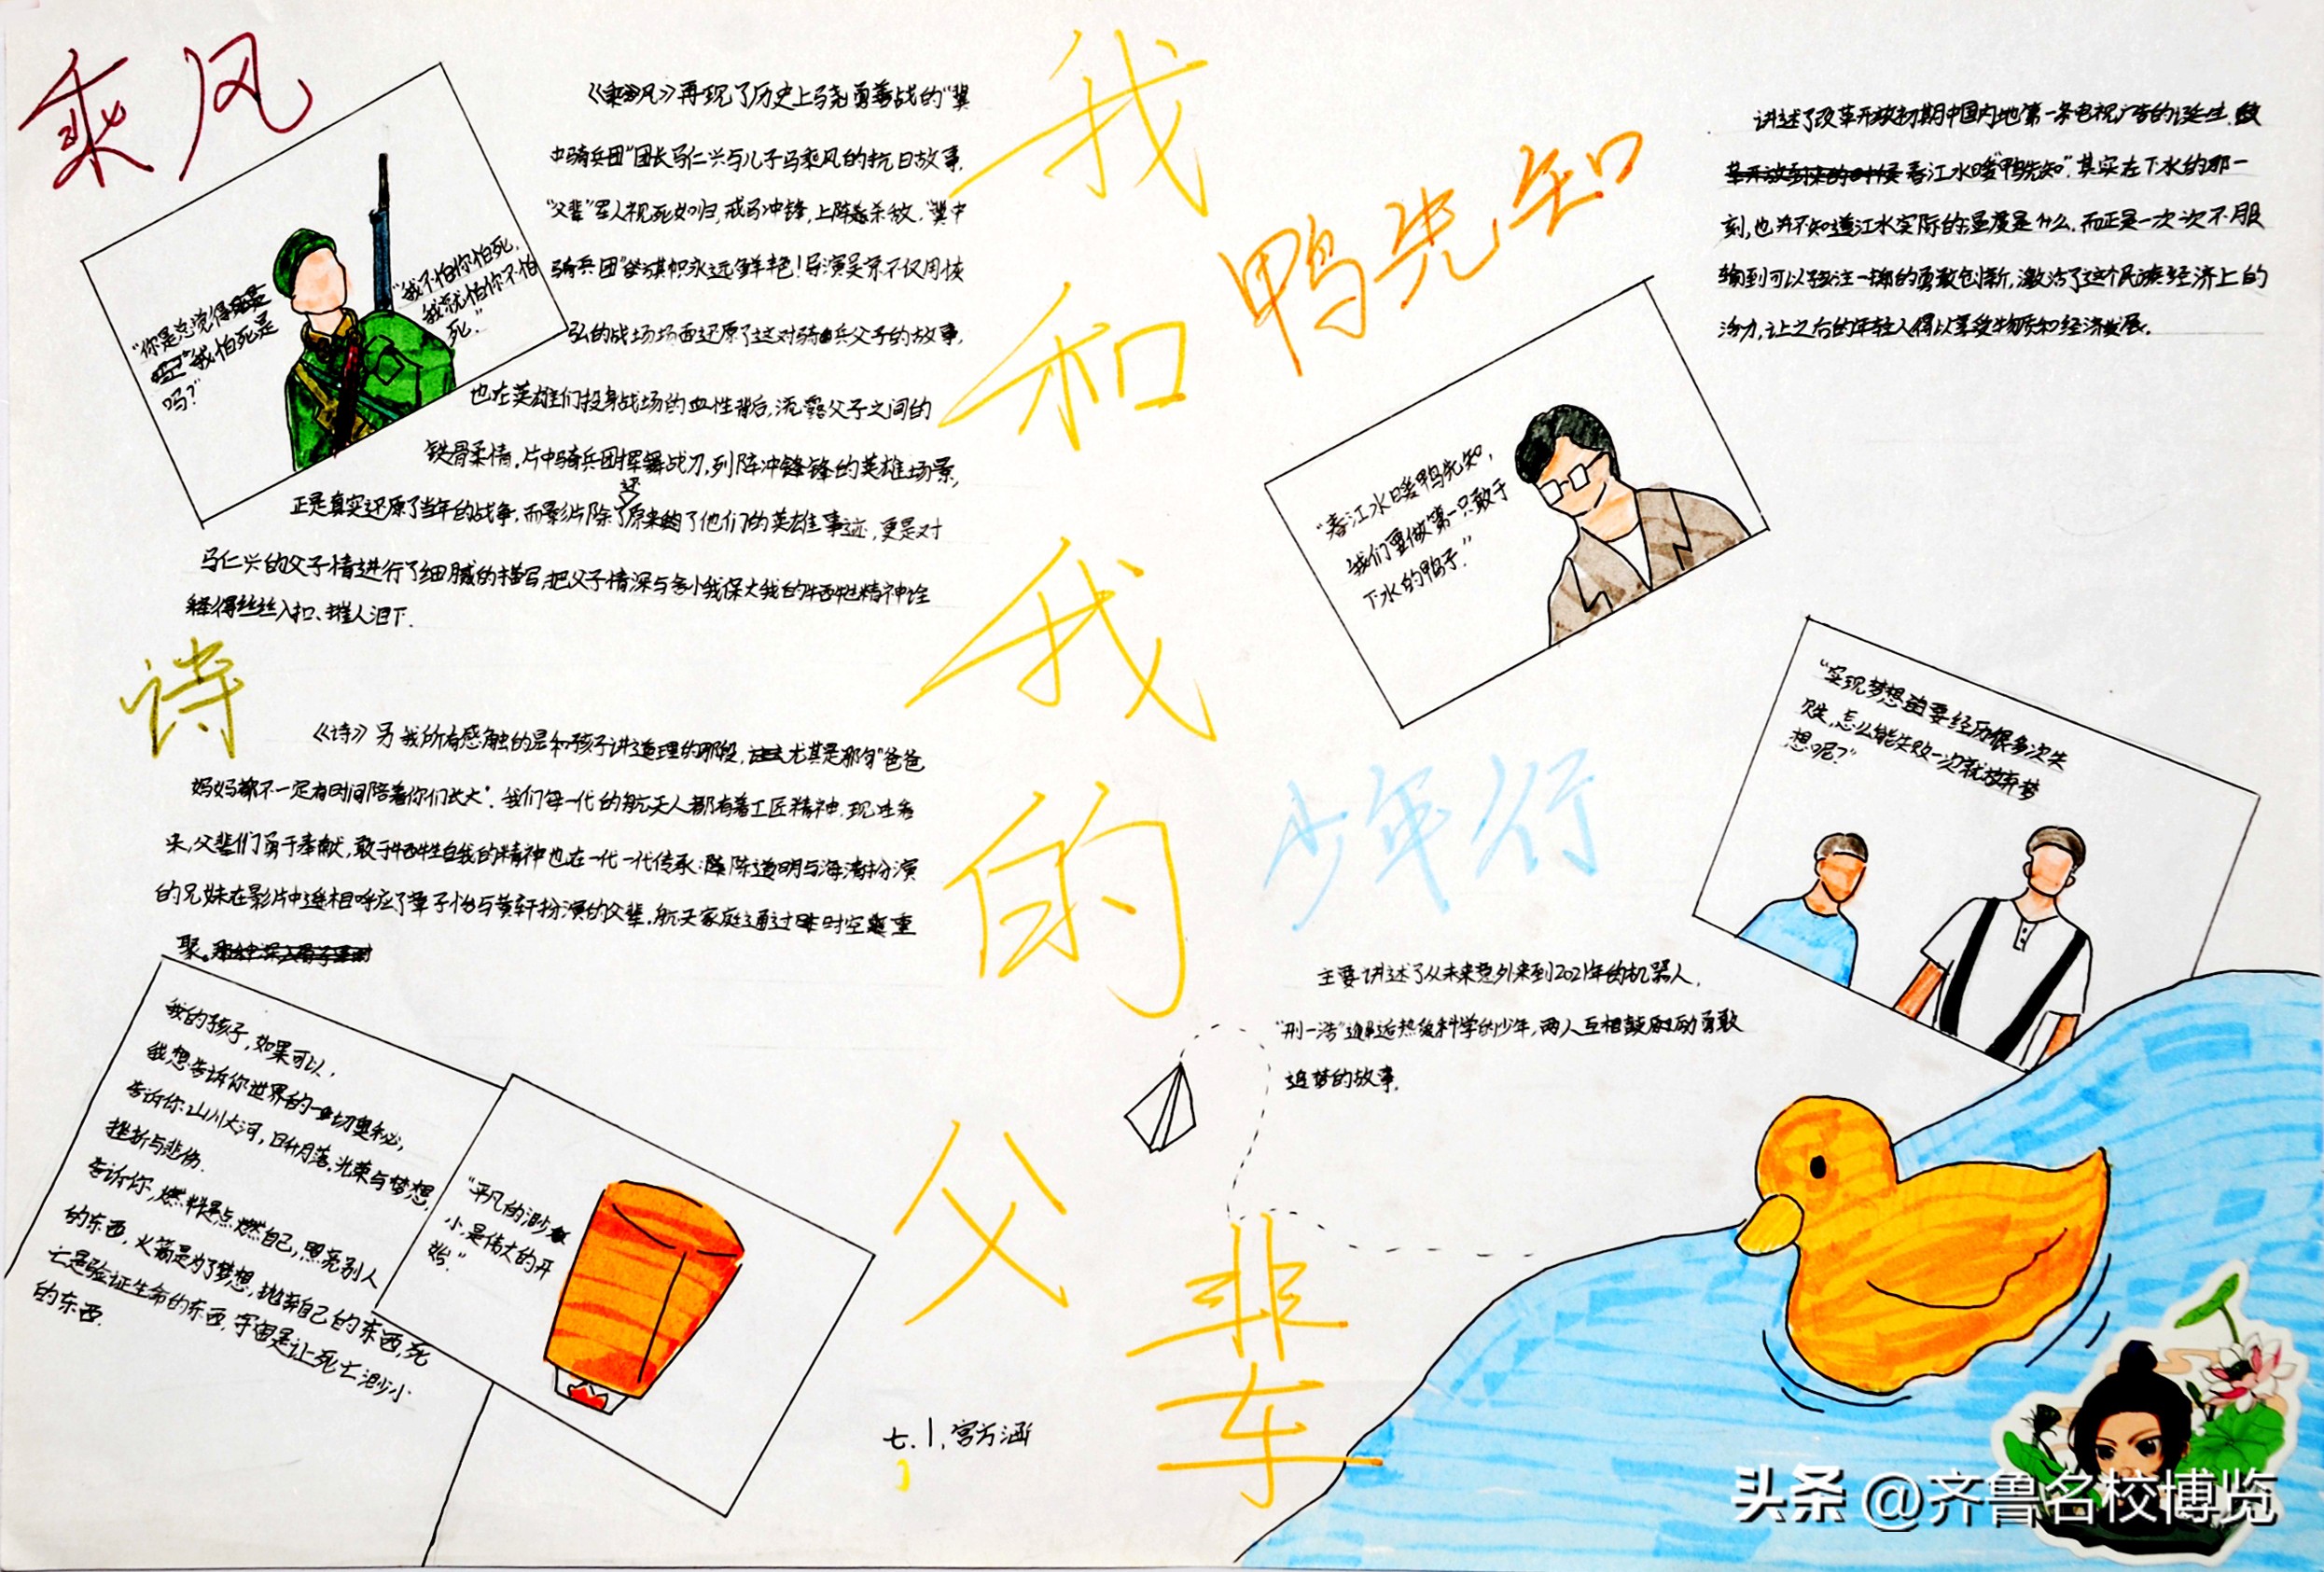 乘风
《乘风》再现了历史上骁勇善战的"冀
中骑兵团"团长马仁兴与儿子马乘风的抗日故事.
"父辈"军人视死如归,戎马冲锋,上阵杀敌."冀中
骑兵团"的旗帜永远鲜艳!导演吴京不仅用恢
弘的战场场面还原了这对骑兵父子的故事,
也在英雄们投身战场的血性背后,流露父子之间的
铁骨柔情.片中骑兵团挥舞战刀,列阵冲锋的英雄场景,
正是真实还原了当年的战争.而影片除了还原了他们的英雄事迹,更是对
马仁兴的父子情进行了细腻的描写,把父子情深与舍小我保大我的牺牲精神诠
释得丝丝入扣、催人泪下.
"你是总觉得
我怕死是
吗?"
"我不怕你怕死,
我就怕你不怕
死."
诗
《诗》另我所有感触的是和孩子讲道理的那段,尤其是那句"爸爸
妈妈都不一定有时间陪着你们长大".我们每一代的航天人都有着工匠精神.
来,父辈们勇于奉献,敢于牺牲自我的精神也在一代一代传承.陈道明与海清扮演
的兄妹在影片中遥相呼应了章子怡与黄轩扮演的父辈.航天家庭通过时空重
聚.
我的孩子,如果可以,
我想告诉你世界的一切奥秘,
告诉你:山川大河,日升月落,光荣与梦想,
挫折与悲伤.
告诉你,燃料是点燃自己,照亮别人
的东西,火箭是为了梦想,抛弃自己的东西,死
亡是验证生命的东西,宇宙是让死亡渺小
的东西.
"平凡的渺
小,是伟大的开
始."
七.1,宫方涵
我和我的父辈
鸭先知
讲述了改革开放初期中国内地第一条电视广告的诞生.
春江水暖"鸭先知".其实在下水的那一
刻,也并不知道江水实际的温度是什么.而正是一次次不服
输到可以孤注一掷的勇敢创新,激活了这个民族经济上的
活力,让之后的年轻人得以享受物质和经济发展.
"春江水暖鸭先知,
我们要做第一只敢于
下水的鸭子."
少年行
主要讲述了从未来意外来到2021年的机器人,
"邢一浩"邂逅热爱科学的少年,两人互相鼓励勇敢
追梦的故事.
"实现梦想要经历很多次失
败,怎么能失败一次就放弃梦
想呢?"
头条 @齐鲁名校博览